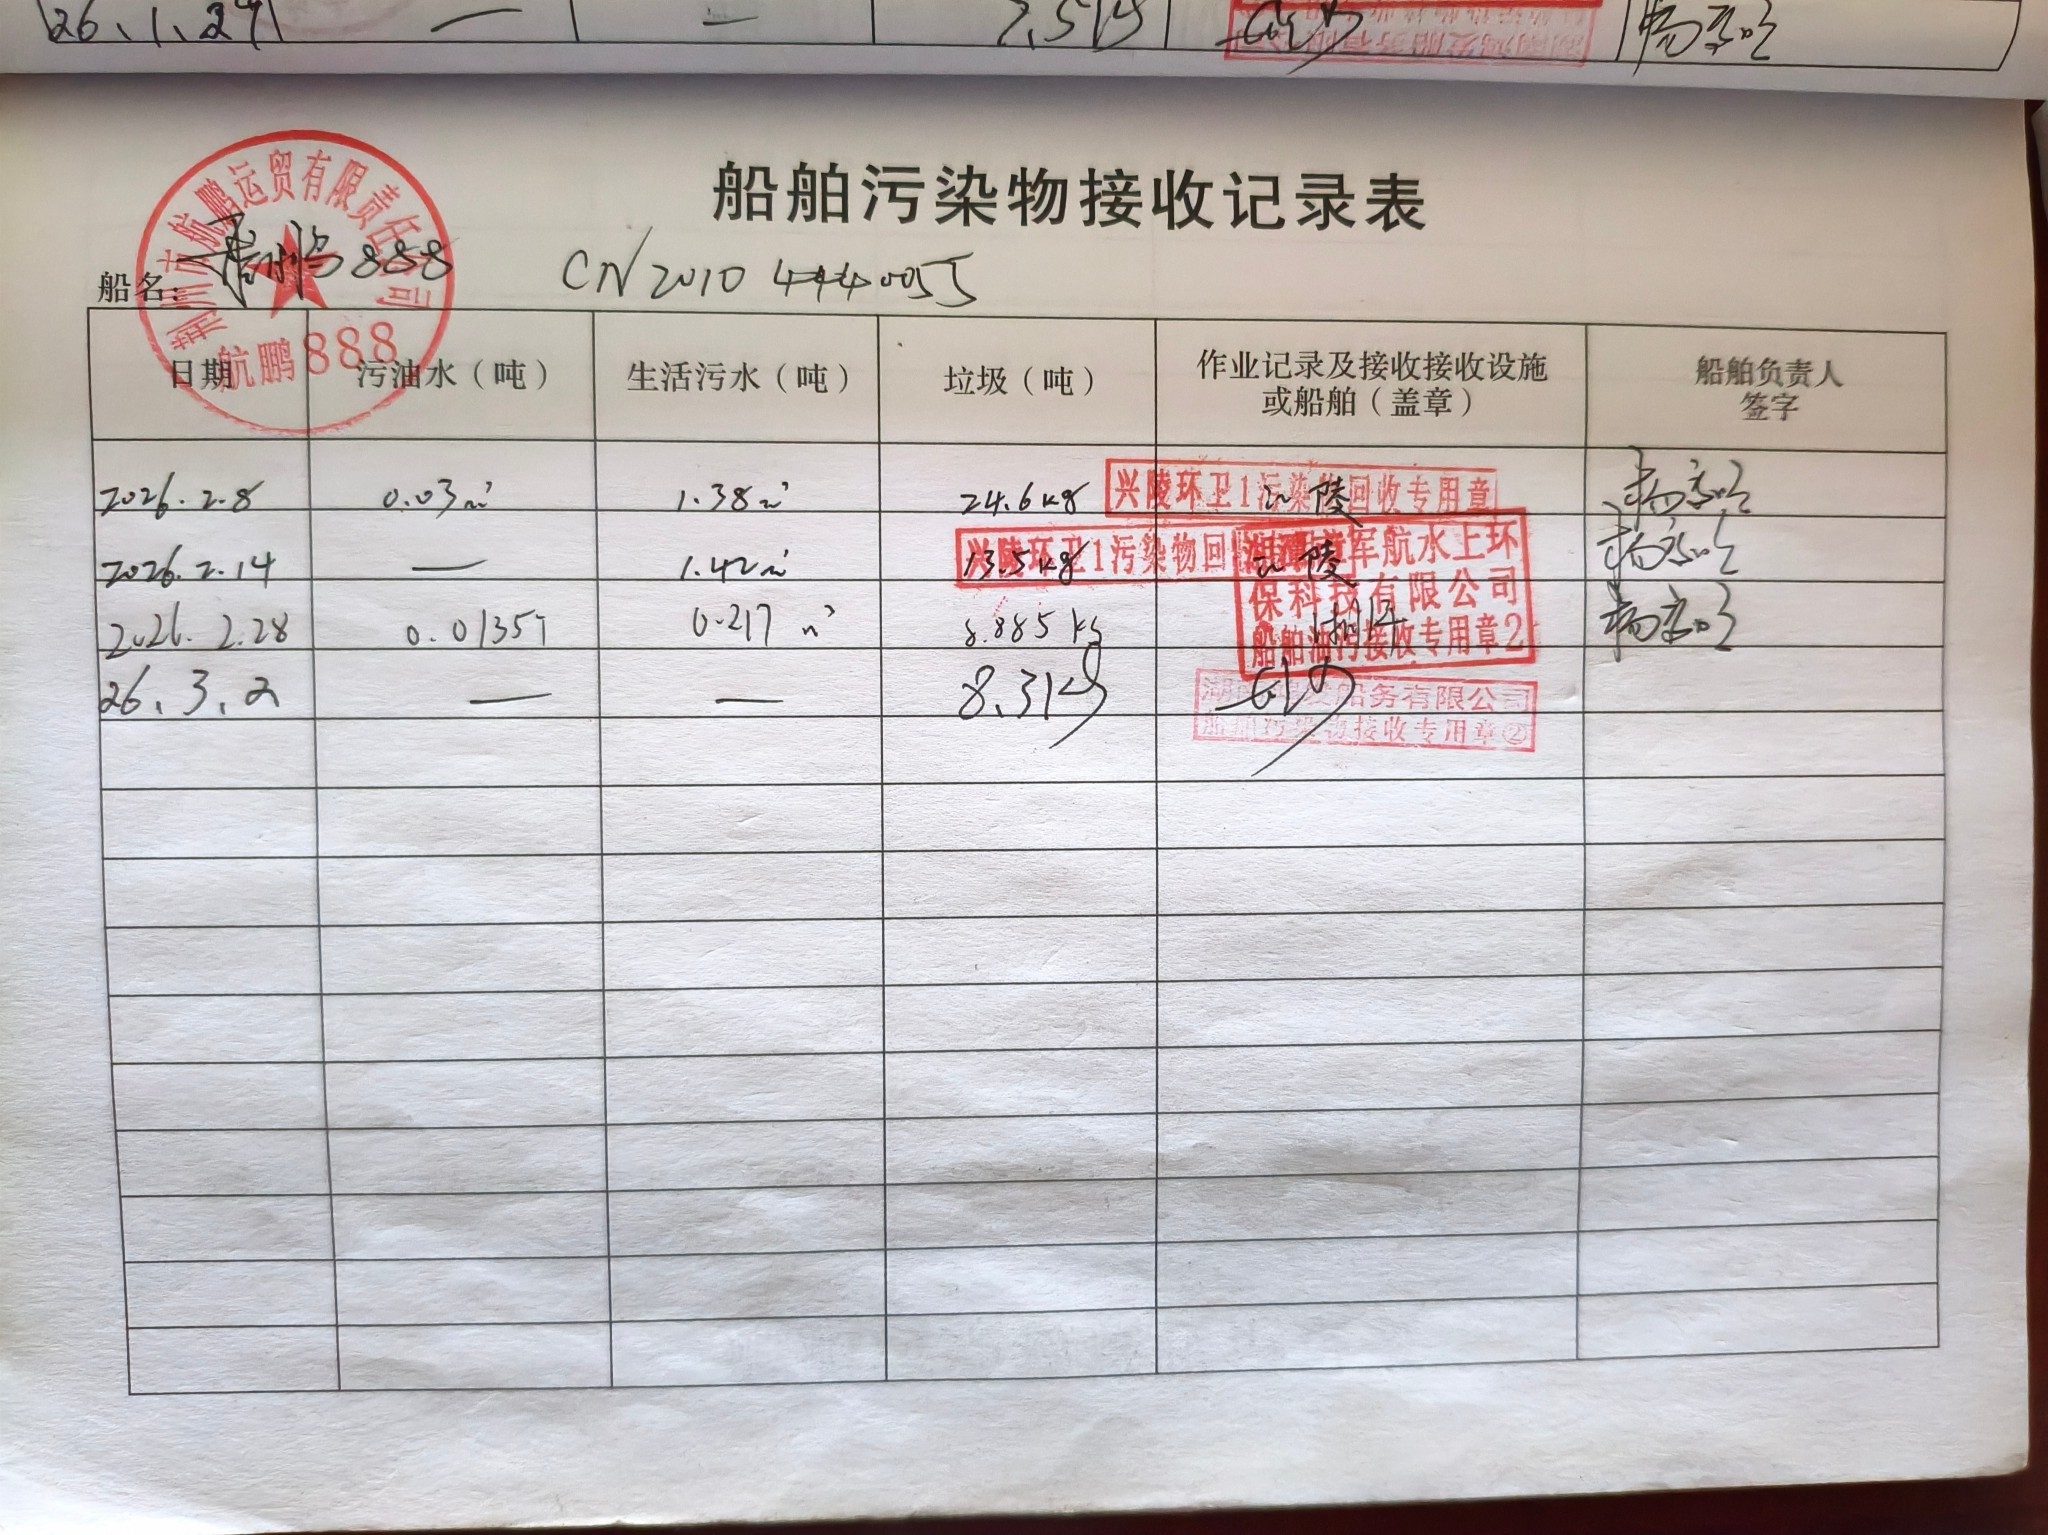 26.1.29 — —
船舶污染物接收记录表
荆州市航鹏运贸有限责任公司
航鹏888
船名: 888 CN20104440055
日期 污油水（吨） 生活污水（吨） 垃圾（吨） 作业记录及接收接收设施或船舶（盖章） 船舶负责人签字
2026.2.8 0.03m³ 1.38m³ 24.6kg 江陵
兴陵环卫1污染物回收专用章
2026.2.14 — 1.42m³ 13.5kg 江陵
兴陵环卫1污染物回
军航水上环
保科技有限公司
船舶油污接收专用章2
2026.2.28 0.0135T 0.217m³ 8.885kg
26.3.2 — — 8.31kg
船务有限公司
船舶污染物接收专用章②